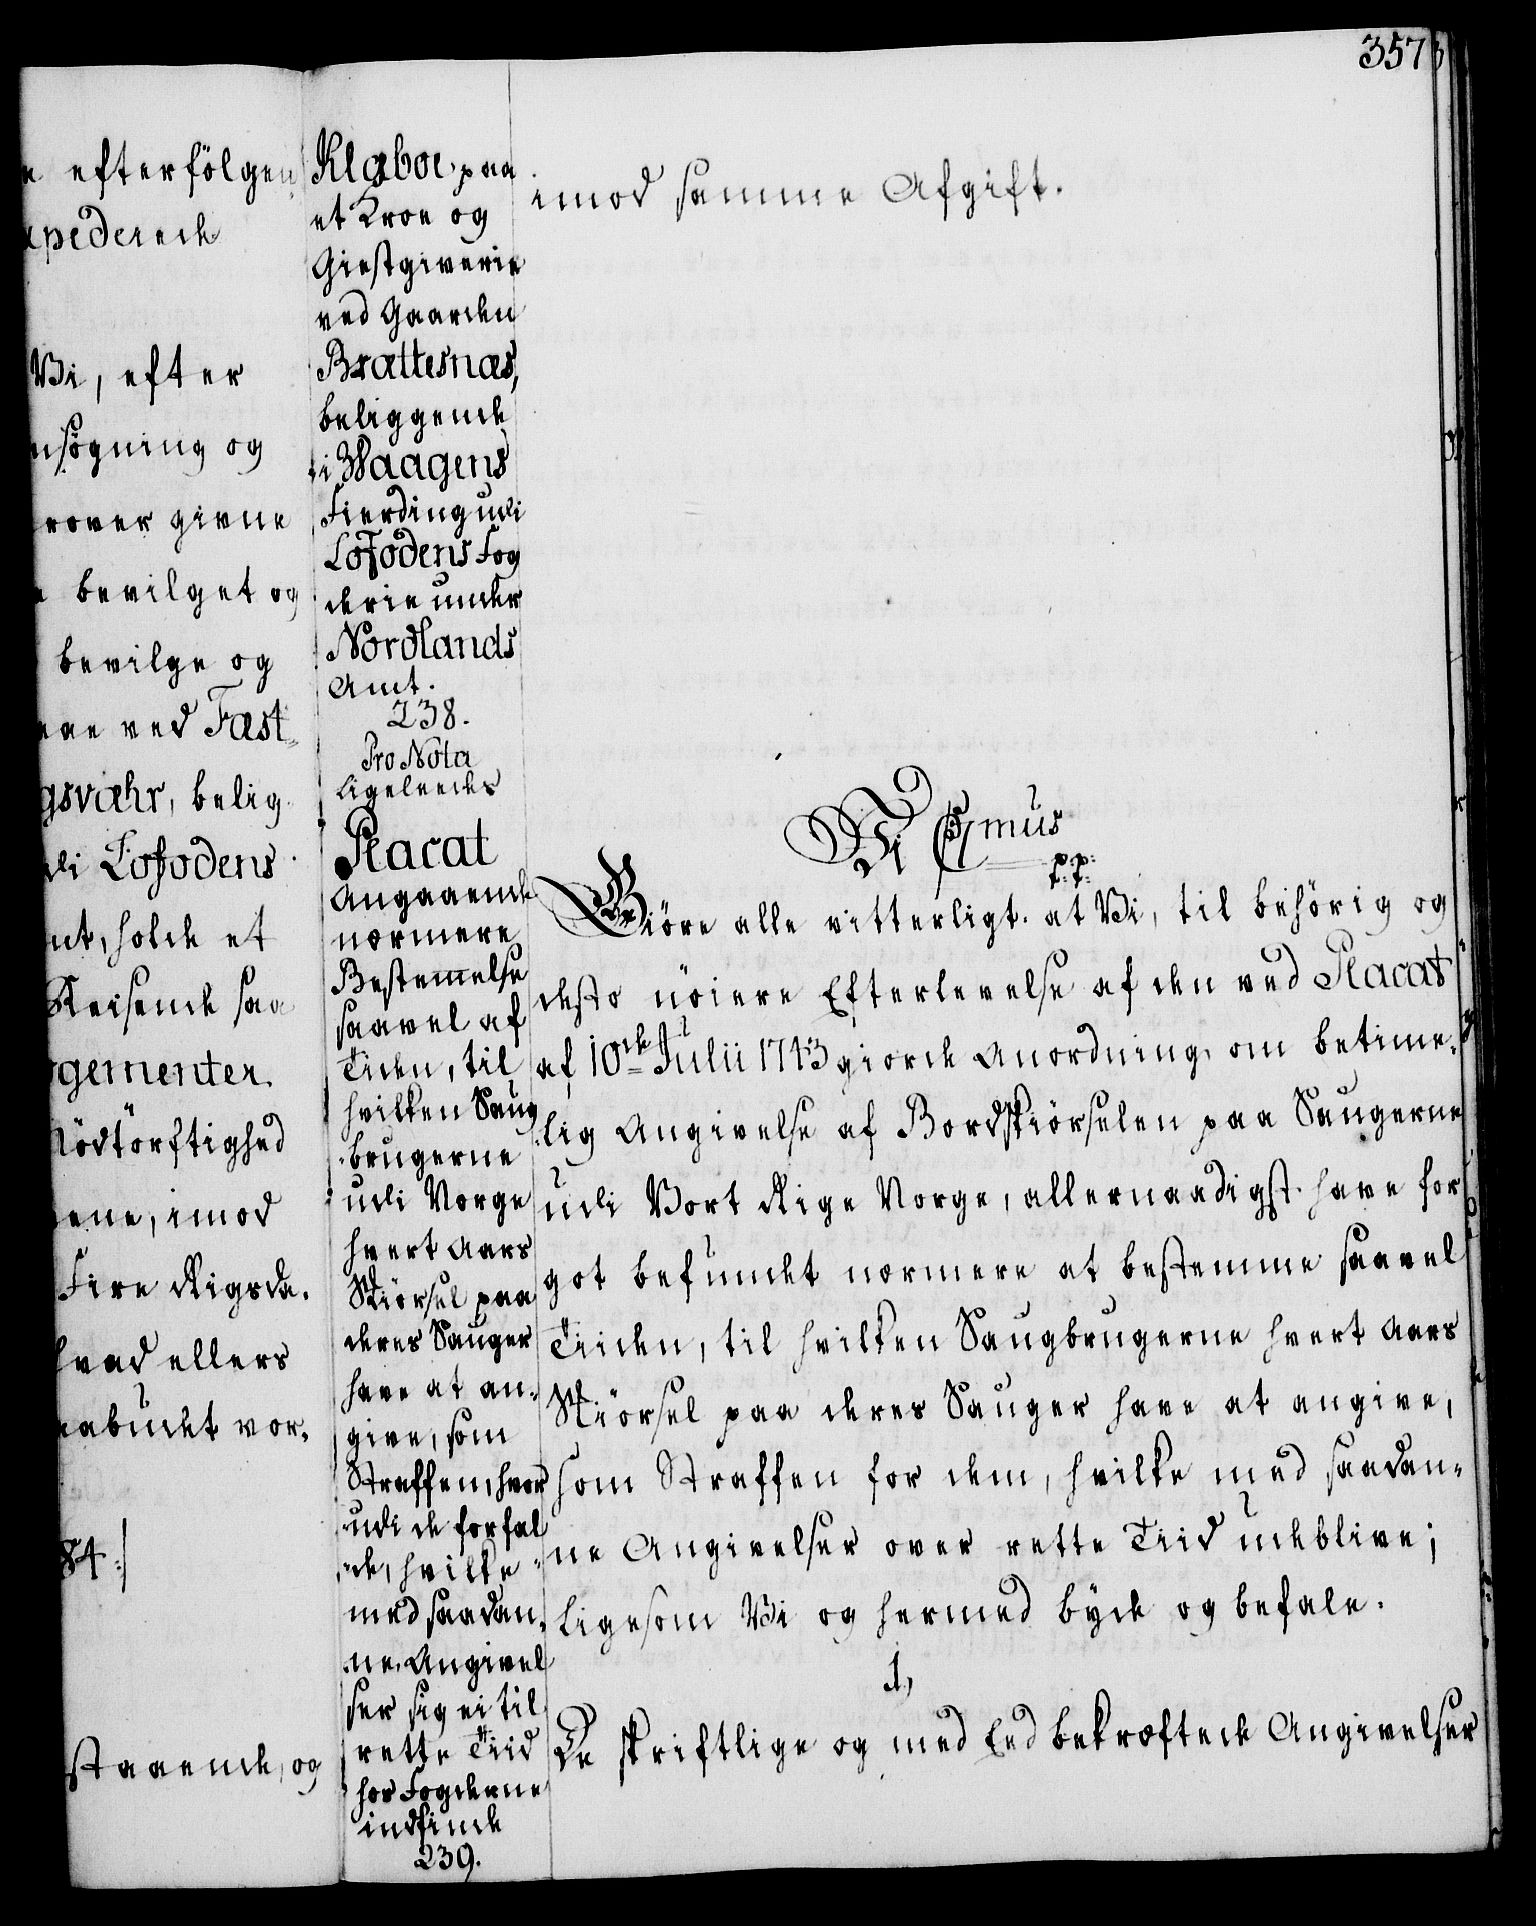 357
e efterfölgen
xpederede
Vi, efter
nsøgning og
rover givne
e bevilget og
bevilge og
ne ved Fast-
gsvæhr, belig-
di Lofodens
nt, holde et
Reisende saa
gementer
Nödtörftighed
ene, imod
Fire Rigsda-
hvad ellers
nabudet vor-
84:/
staaende, og
Klæboe paa
et Kroe og
Giestgiverie
ved Gaarden
Brattesnæs,
beliggende
i Waagens
Fierding udi
Lofodens Fog
derie under
Nordlands
Amt.
238.
Pro Nota
Ligeleedes
Placat
Angaaende
nærmere
Bestemelse
saavel af
Tiden, til
hvilken Saug
brugerne
udi Norge
hvert Aars
Skiörsel paa
deres Sauger
have at an-
give, som
Straffen, hvor
udi de forfal
de, hvilke
med saadan-
ne Angivel
ser sig ei til
rette Tiid
hos Fogderne
indfinde
239.
imod samme Afgift.
Wi C 7mus
p.p.
t.t.
Giöre alle vitterligt. at Vi, til behörig og
desto nöiere Efterlevelse af den ved Placat
af 10de Julii 1743 giorde Anordning, om betime-
lig Angivelse af Bordskiörselen paa Saugerne
udi Vort Rige Norge, allernaadigst have for
got befundet nærmere at bestemme saavel
Tiiden, til hvilken Saugbrugerne hvert Aars
Skiörsel paa deres Sauger have at angive,
som Straffen for dem, hvilke med saadan-
ne Angivelser over rette Tiid udeblive;
Ligesom Vi og hermed byde og befale.
1,
De skriftlige og med Eed bekræftede Angivelser